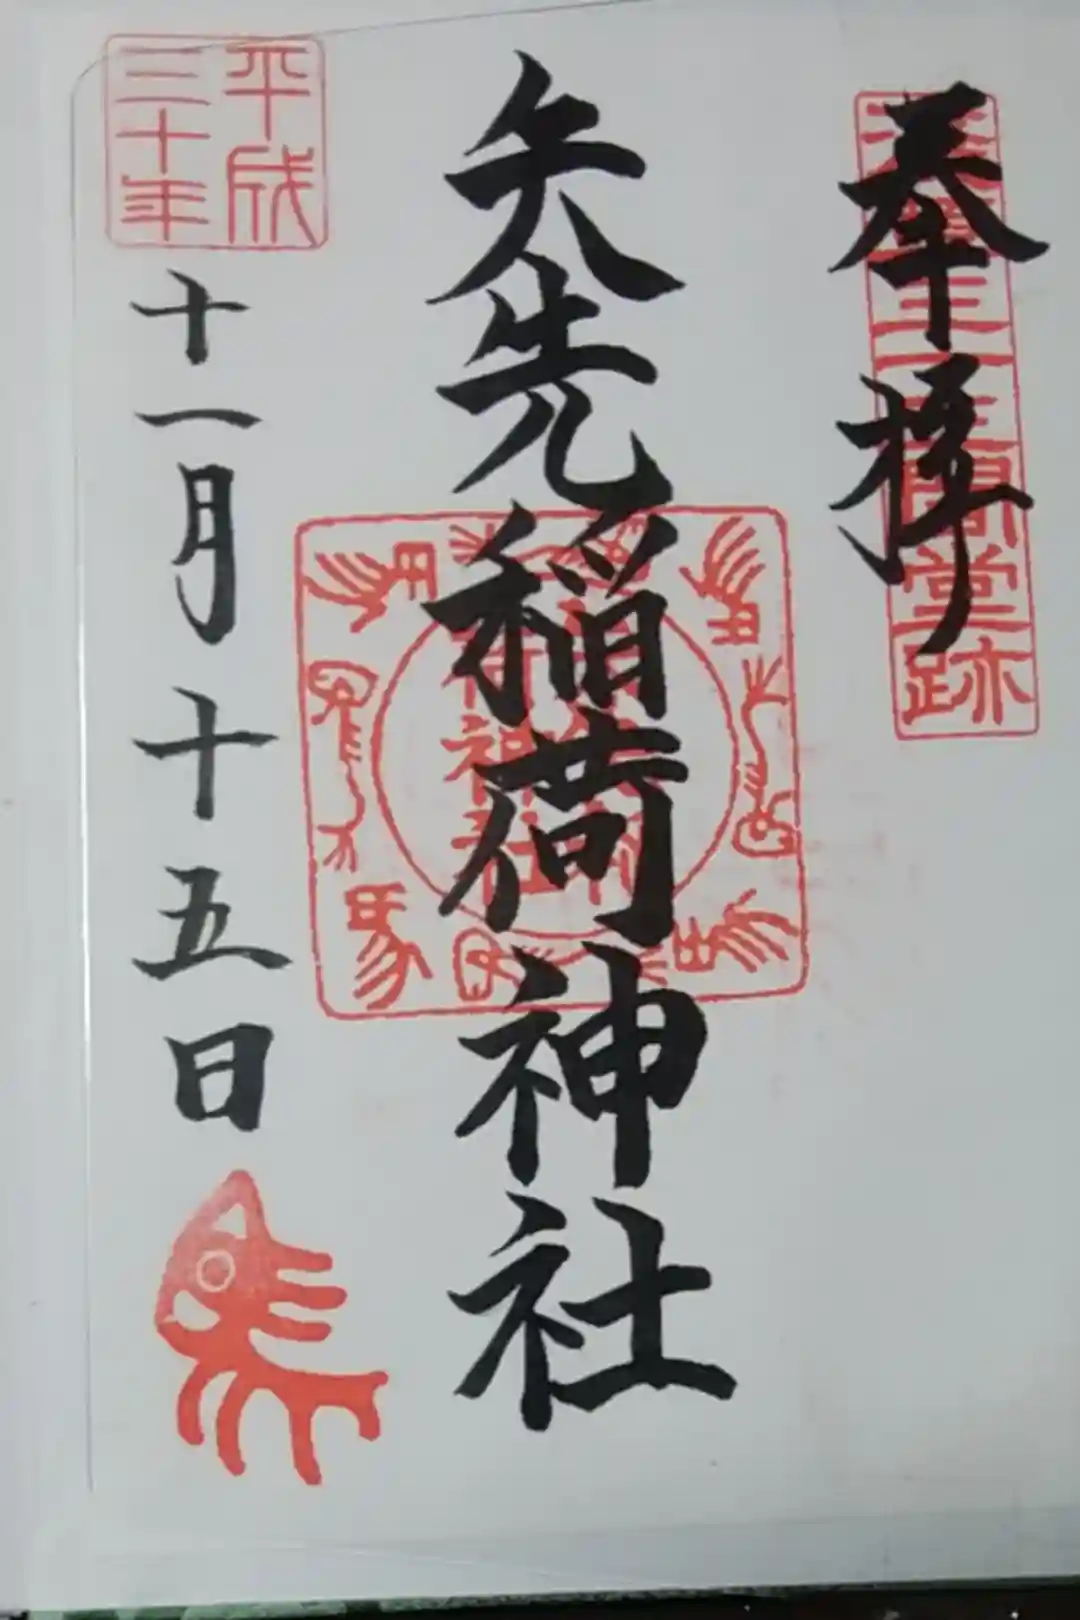 奉拝
三十三間堂跡
矢先稲荷神社
平成
三十年
十一月十五日